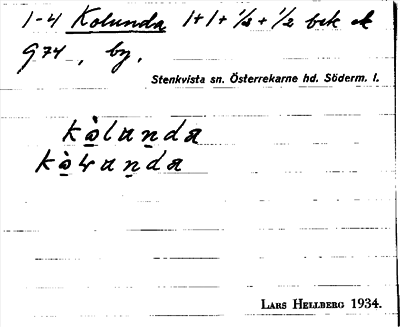 1-4 Kolunda 1+1+½+½ bek ek
G 74, by.
Stenkvista sn. Österrekarne hd. Söderm. l.
kò̲lun̲da
kò̲łun̲da
LARS HELLBERG 1934.